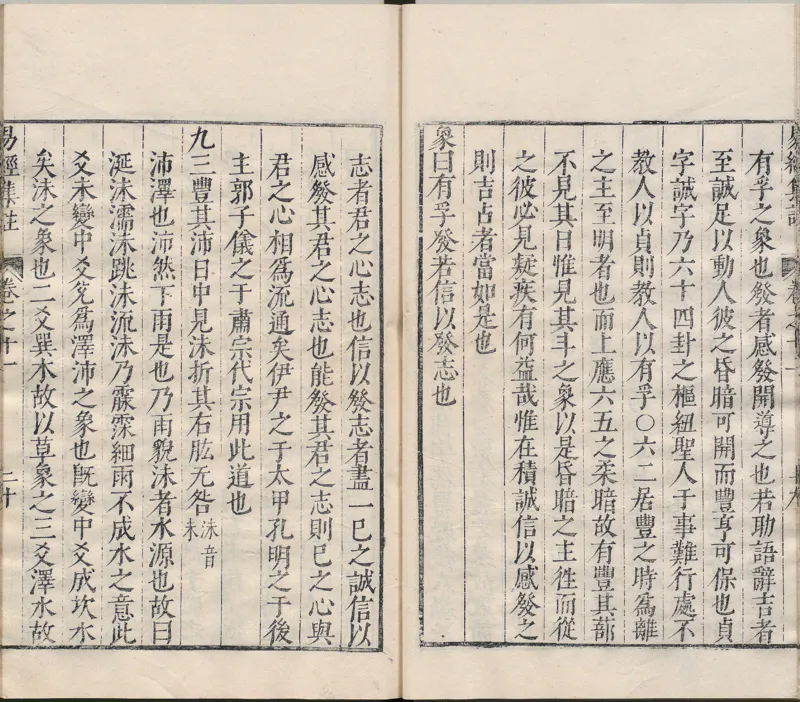 有孚之象也發者感發開導之也若助語辭吉者
至誠足以動人彼之昏暗可開而豐亨可保也貞
字誠字乃六十四卦之樞紐聖人于事難行處不
教人以貞則教人以有孚○六二居豐之時為離
之主至明者也而上應六五之柔暗故有豐其蔀
不見其日惟見其斗之象以是昏暗之主徃而從
之彼必見疑疾有何益哉惟在積誠信以感發之
則吉占者當如是也
象曰有孚發若信以發志也
志者君之心志也信以發志者盡一己之誠信以
感發其君之心志也能發其君之志則己之心與
君之心相為流通矣伊尹之于太甲孔明之于後
主郭子儀之于肅宗代宗用此道也
九三豐其沛日中見沬折其右肱无咎 沬音未
沛澤也沛然下雨是也乃雨貌沬者水源也故曰
涎沬濡沬跳沬流沬乃霡霂細雨不成水之意此
爻未變中爻兌為澤沛之象也旣變中爻成坎水
矣沬之象也二爻巽木故以草象之三爻澤水故
易經集註 卷之十一 二十